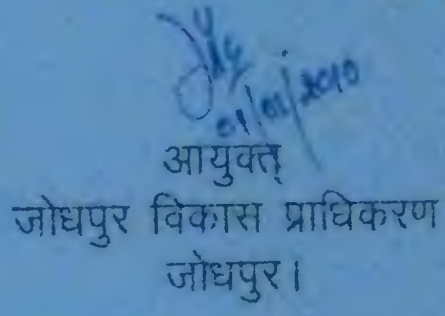 01/02/2010
आयुक्त्
जोधपुर विकास प्राधिकरण
जोधपुर।